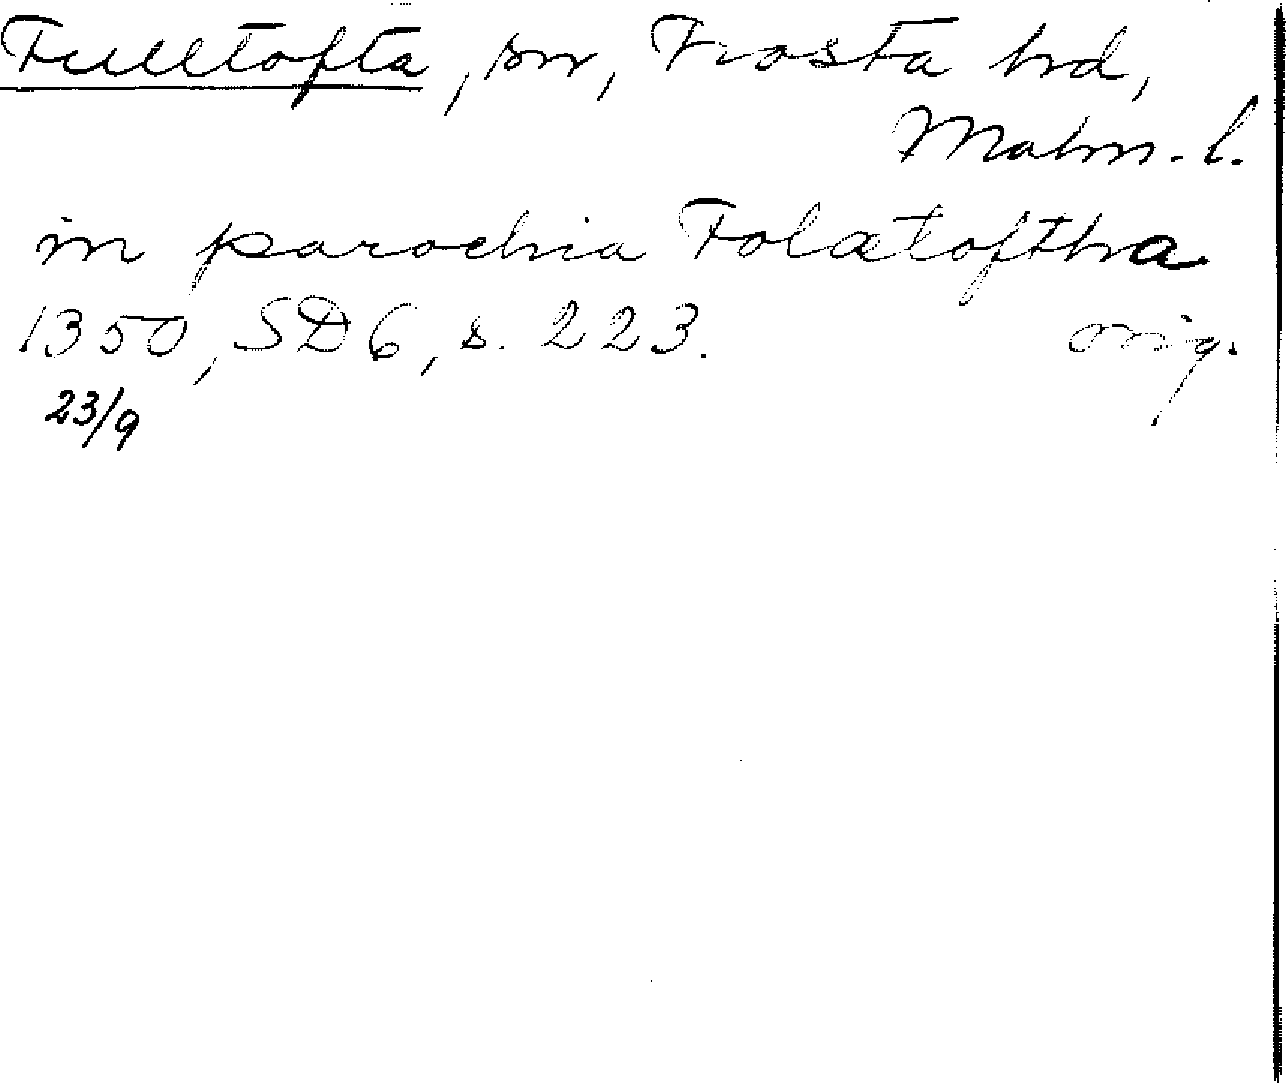 Fulltofta, sn, Frosta hd,
Malm. l.
in parochia Folætoftha
1350, SD 6, s. 223. orig.
23/9